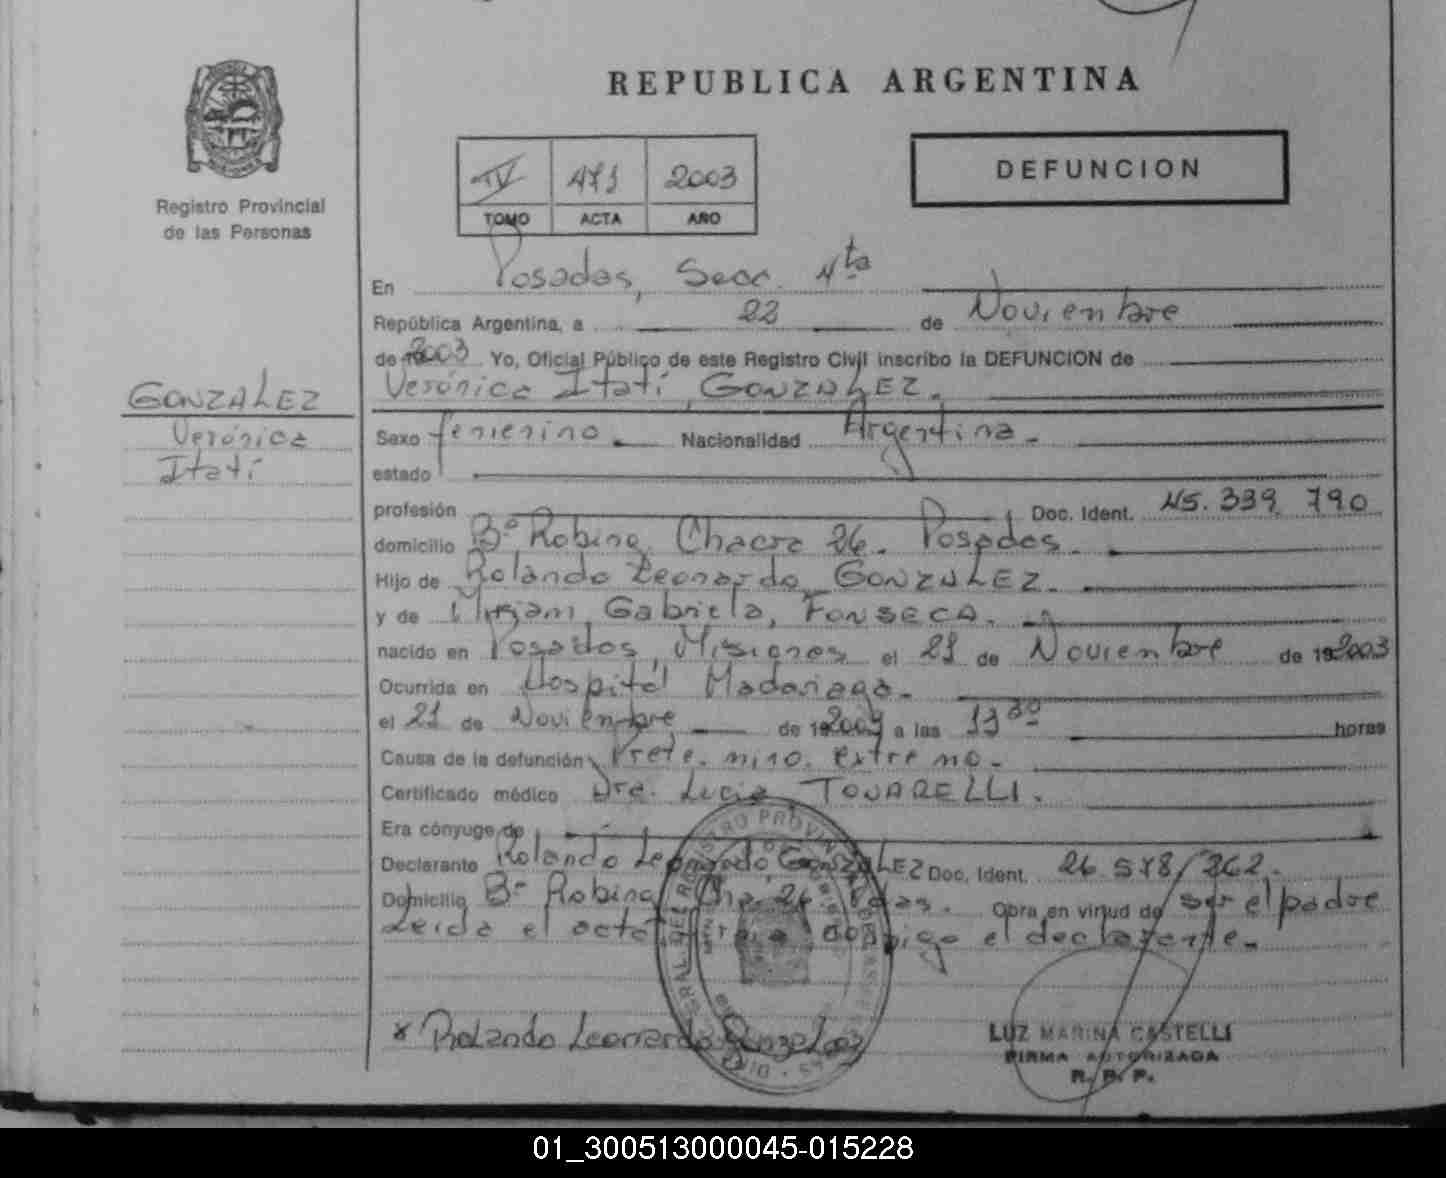 REPUBLICA ARGENTINA
Registro Provincial
de las Personas
IV 471 2003
TOMO ACTA AÑO
DEFUNCION
En Posadas, Secc. 4ta
República Argentina, a 22 de Noviembre
de 2003 Yo, Oficial Público de este Registro Civil inscribo la DEFUNCION de
Verónica Itatí, GONZALEZ.
GONZALEZ
Verónica
Itatí
Sexo femenino. Nacionalidad Argentina.
estado
profesión Doc. Ident. 45.339.790
domicilio Bº Robina Chacra 26. Posadas.
Hijo de Rolando Leonardo, GONZALEZ.
y de Miriam Gabriela, FONSECA.
nacido en Posadas, Misiones el 21 de Noviembre de 2003
Ocurrida en Hospital Madariaga.
el 21 de Noviembre de 2003 a las 13 30 horas
Causa de la defunción Prete. mino. extremo.
Certificado médico Dra. Lucia TOVARELLI.
Era cónyuge de
Declarante Rolando Leonardo GonzaLEZ Doc. Ident. 26.518/262.
Domicilio Bº Robina, Cha. 26 Pdas. Obra en virtud de ser el padre
Leida el acta firma conmigo el declarante.
x Rolando Leonardo Gonzalez
LUZ MARINA CASTELLI
FIRMA AUTORIZADA
R. P. P.
01_300513000045-015228